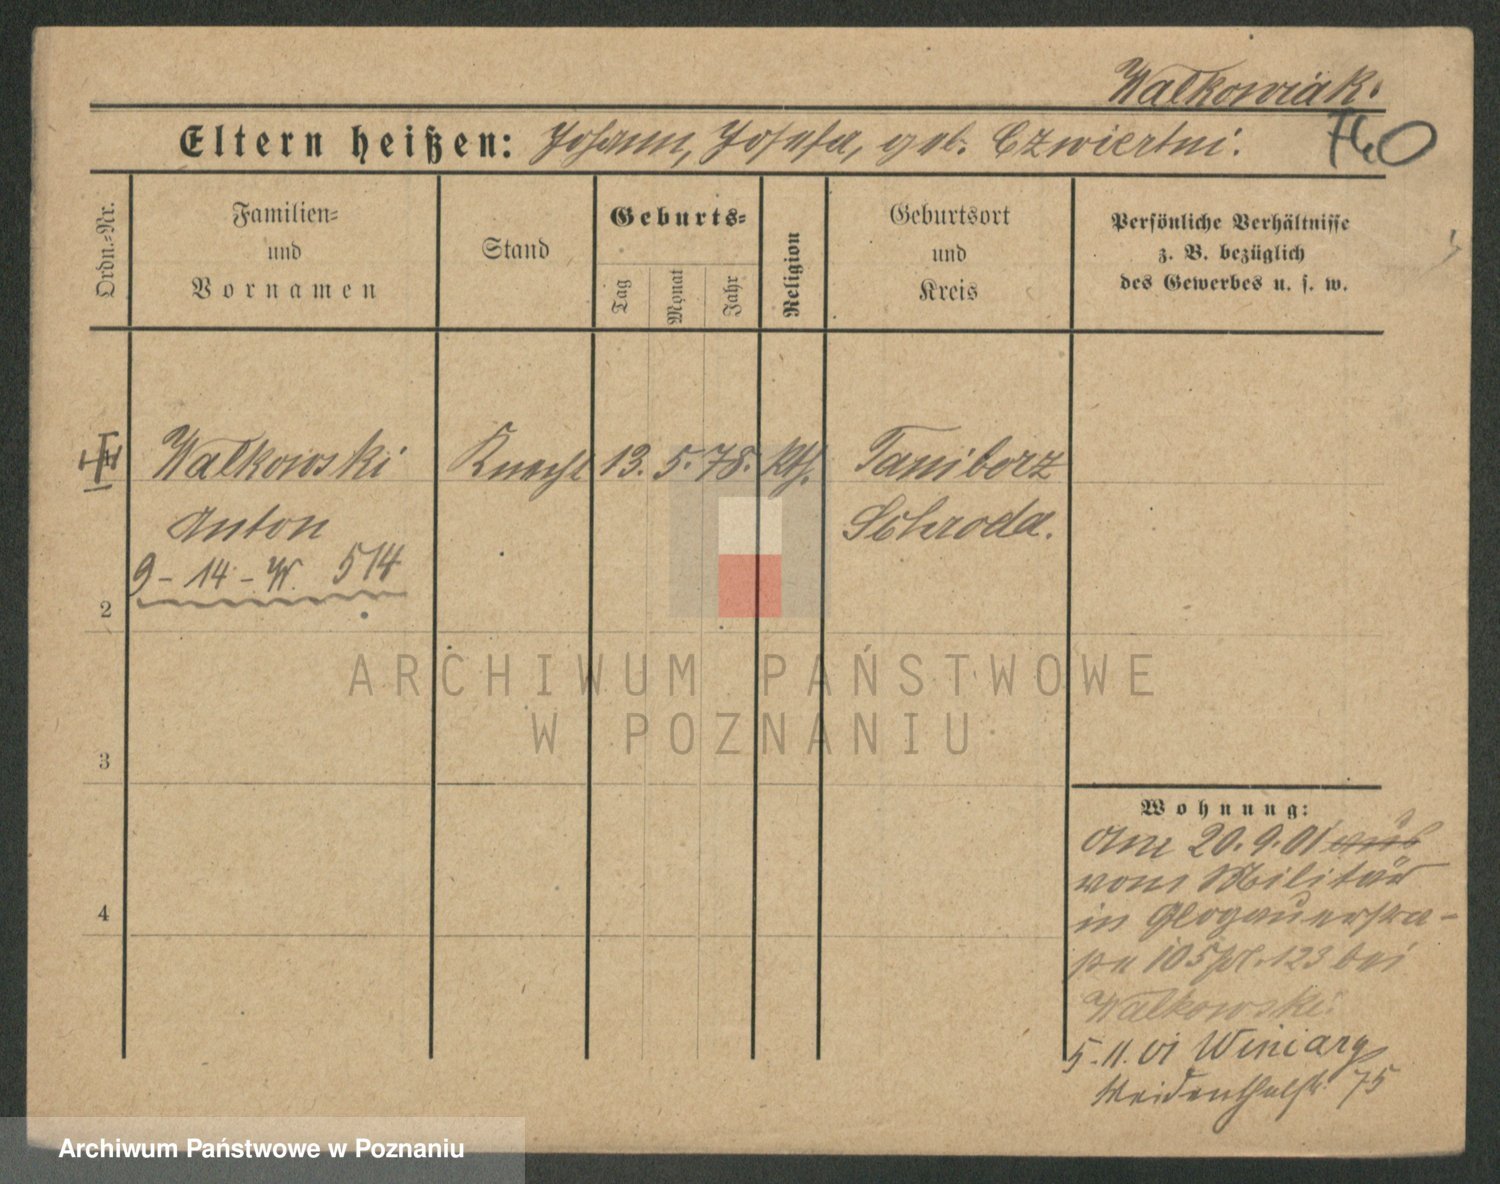 Walkowiak.
Eltern heißen: Johann, Josefa, geb. Czwiertni.
740
Ordn.-Nr.
Familien-
und
Vornamen
Stand
Geburts-
Tag
Monat
Jahr
Religion
Geburtsort
und
Kreis
Persönliche Verhältnisse
z. B. bezüglich
des Gewerbes u. s. w.
Walkowski Knecht 13. 5. 78. kth. Taniborz
Anton Schroda.
9 - 14 - W. 514
2
ARCHIWUM PAŃSTWOWE
W POZNANIU
3
4
Wohnung:
Am 20.9.01 aus
vom Militär
in Glogauerstra-
ße 105 pt. 123 bei
Walkowski.
5.11.01 Winiary
Weidenthalstr. 75
Archiwum Państwowe w Poznaniu